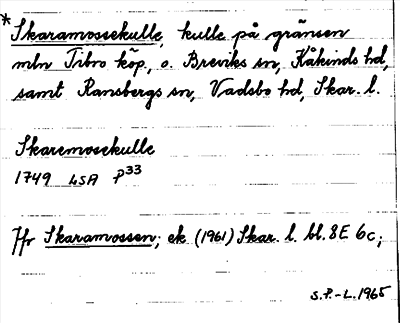 * Skaramossekulle, kulle på gränsen
mln Tibro köp., o. Breviks sn, Kåkinds hd,
samt Ransbergs sn, Vadsbo hd, Skar. l.
Skaremosekulle
1749 LSA P33
Jfr Skaramossen; ek (1961) Skar. l. bl. 8E 6c;
S.P.-L. 1965